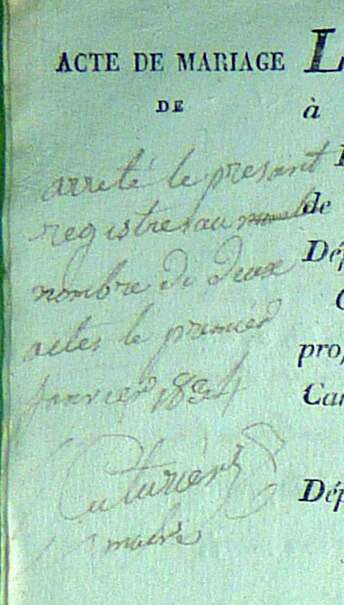 ACTE DE MARIAGE
DE
arreté le present
registre au
nombre de deux
actes le premier
Janvier 1824
Couturier
maire
L
à
de
Dép
C
prof
Can
Dép